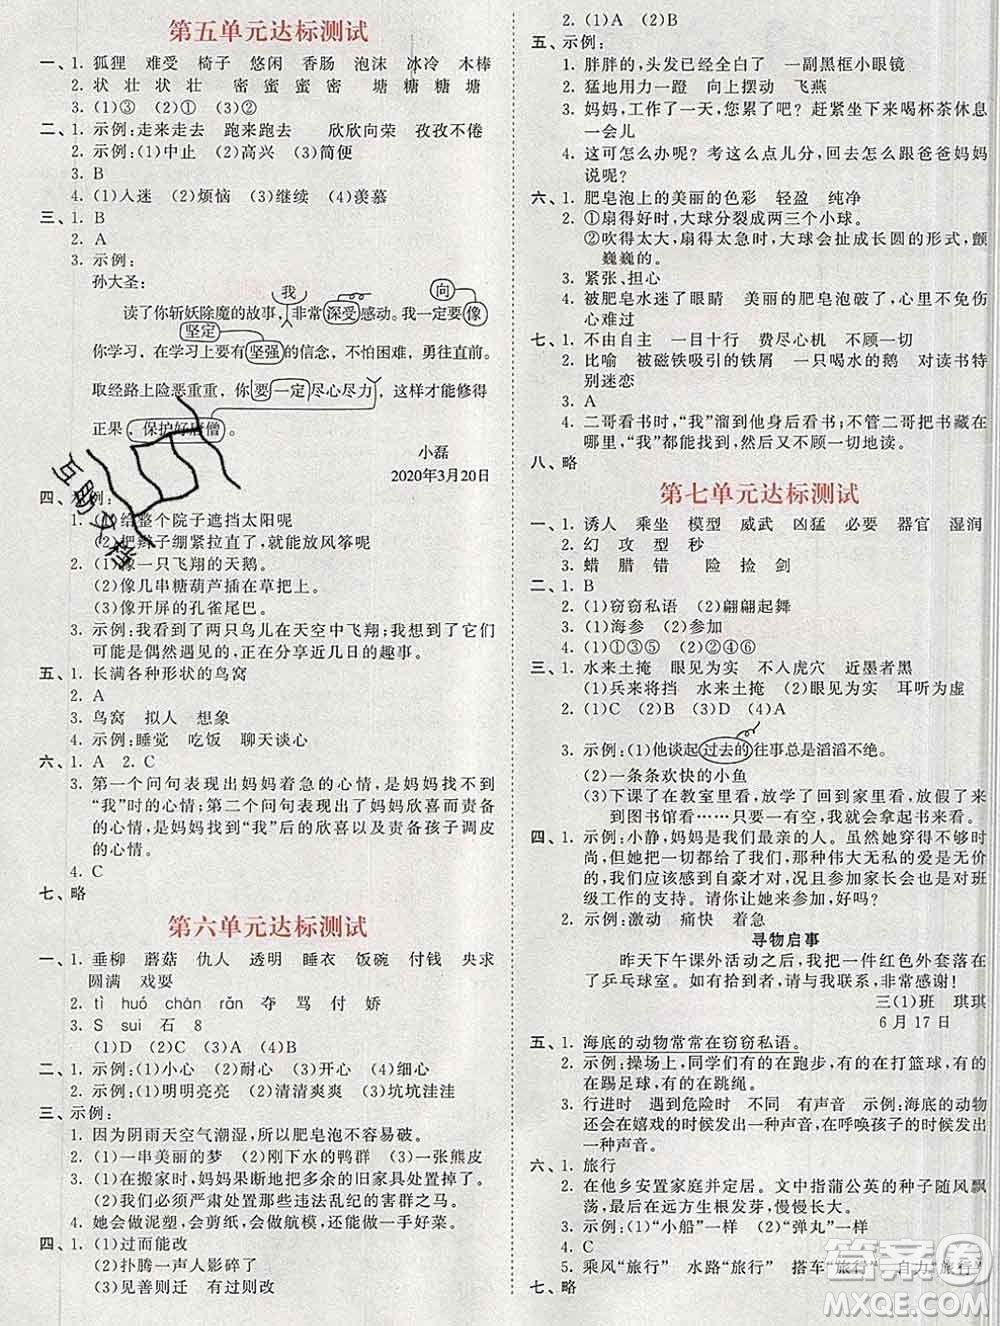 第五单元达标测试
一、1. 狐狸 难受 椅子 悠闲 香肠 泡沫 冰冷 木棒
2. 状 壮 状 壮 密 蜜 蜜 密 塘 糖 糖 塘
3. (1)③ (2)① (3)②
二、1. 示例:走来走去 跑来跑去 欣欣向荣 孜孜不倦
2. 示例:(1)中止 (2)高兴 (3)简便
3. B
4. (1)入迷 (2)烦恼 (3)继续 (4)羡慕
三、1. B
2. A
3. 示例:
孙大圣:
我 向
读了你斩妖除魔的故事,非常深受感动。我一定要像
坚定
你学习,在学习上要有坚强的信念,不怕困难,勇往直前。
取经路上险恶重重,你要一定尽心尽力,这样才能修得
正果,保护好唐僧。
小磊
2020年3月20日
四、示例:
1. (1)给整个院子遮挡太阳呢
(2)把辫子绷紧拉直了,就能放风筝呢
2. (1)像一只飞翔的天鹅。
(2)像几串糖葫芦插在草把上。
(3)像开屏的孔雀尾巴。
3. 示例:我看到了两只鸟儿在天空中飞翔;它们
可能是偶然遇见的,正在分享近几日的趣事。
五、1. 长满各种形状的鸟窝
2. A
3. 鸟窝 拟人 想象
4. 示例:睡觉 吃饭 聊天谈心
六、1. A 2. C
3. 第一个问句表现出妈妈着急的心情,是妈妈找不到
“我”时的心情;第二个问句表现了妈妈欣喜而责备
的心情,是妈妈找到“我”后的欣喜以及责备孩子调皮
的心情。
4. C
七、略
第六单元达标测试
一、1. 垂柳 蘑菇 仇人 透明 睡衣 饭碗 付钱 央求
圆满 戏耍
2. tì huó chàn rǎn 夺 骂 付 娇
3. S sui 石 8
(1)D (2)C (3)A (4)B
二、1. 示例:(1)小心 (2)耐心 (3)开心 (4)细心
2. 示例:(1)明明亮亮 (2)清清爽爽 (3)坑坑洼洼
三、示例:
1. 因为阴雨天空气潮湿,所以肥皂泡不容易破。
2. (1)一串美丽的梦 (2)刚下水的鸭群 (3)一张熊皮
3. (1)在搬家时,妈妈果断地把一些旧家具处置掉了。
(2)我们必须严肃处置那些违法乱纪的害群之马。
4. 她会做泥塑,会剪纸,会弹琴,还会画国画。
四、1. (1)过而能改
(2)扑腾一声人影碎了
(3)见善则迁 有过则改
2. (1)A (2)B
五、示例:
1. 胖胖的,头发已经全白了 一副黑框小眼镜
2. 猛地用力一蹬 向上摆动 飞燕
3. 妈妈,工作了一天,您累了吧? 赶紧坐下来喝杯茶休息
一会儿
4. 这可怎么办呢? 考这么点儿分,回去怎么跟爸爸妈妈
说呢?
六、1. 肥皂泡上的美丽的色彩 轻盈 纯净
2. ①扇得好时,大球分裂成两三个小球。
②吹得太大,扇得太急时,大球会扯成长圆的形式,颤
巍巍的。
3. 紧张、担心
4. 被肥皂水迷了眼睛 美丽的肥皂泡破了 心里不免伤
心难过
七、1. 不由自主 一目十行 费尽心机 不顾一切
2. 比喻 被磁铁吸引的铁屑 一只喝水的鹅 对读书特
别迷恋
3. A
4. 二哥看书时,“我”溜到他身后看书;不管二哥把书藏在
哪里,“我”都能找到,然后又不顾一切地读。
八、略
第七单元达标测试
一、1. 诱人 乘坐 模型 威武 凶猛 必要 器官 湿润
2. 幻 攻 型 秒
3. 蜡 腊 错 险 捡 剑
二、1. B
2. (1)窃窃私语 (2)翩翩起舞
3. (1)海参 (2)参加
4. (1)①③⑤ (2)②④⑥
三、1. 水来土掩 眼见为实 不入虎穴 近墨者黑
(1)兵来将挡 水来土掩 (2)眼见为实 耳听为虚
2. (1)C (2)B (3)D (4)A
3. 示例:(1)他谈起过去的往事总是滔滔不绝。
(2)一条条欢快的小鱼
(3)下课了在教室里看,放学了回到家里看,周末了
到图书馆看……只要一有空,我就会拿起书来看。
四、1. 示例:小静,妈妈是我们最亲的人。虽然她穿得不够时
尚,但她把一切都献给了我们,那种伟大无私、无价
的爱,我们应该感到自豪才对。参加家长会也是对班
级工作的支持。请你让她来参加吧!
2. 示例:激动 痛快 着急
寻物启事
昨天下午课外活动之后,我把一件红色外套落在了
乒乓球室。如有拾到者,请与我联系,非常感谢!
三(1)班 琪琪
6月17日
五、1. 海底的动物常常在窃窃私语。
2. 示例:操场上,同学们有的在跑步,有的在打篮球,有的
在踢足球,有的在跳绳。
3. 行进时 遇到危险时 不同 有声音 示例:海底的动物
会在嬉戏的时候发出一种声音,在呼唤孩子的时候发
出一种声音。
六、1. 旅行
2. 在他乡安置家庭并定居。文中指蒲公英的种子随风飘
荡,在远方生根发芽,慢慢长大。
3. 示例:(1)“小船”一样 (2)“弹丸”一样
4. C
5. 乘风“旅行” 水路“旅行” 搭车“旅行” 自力“旅行”
七、略
互助文档
答案圈
MXQE.COM